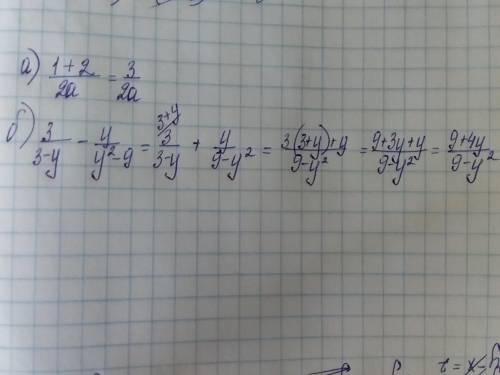 а) (1+2)/(2a) = 3/(2a)
б) 3/(3-y) - y/(y²-9) = 3/(3-y) (3+y + y/(9-y²) = (3(3+y)+y)/(9-y²) = (9+3y+y)/(9-y²) = (9+4y)/(9-y²)